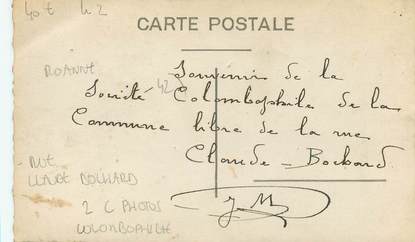 40 t 42
CARTE POSTALE
ROANNE 42
Souvenir de la
Société Colombophile de la
Commune libre de la rue
Claude-Bochard
RUE
CLAUDE BOCHARD
2 C PHOTOS
COLOMBOPHILIE
J M